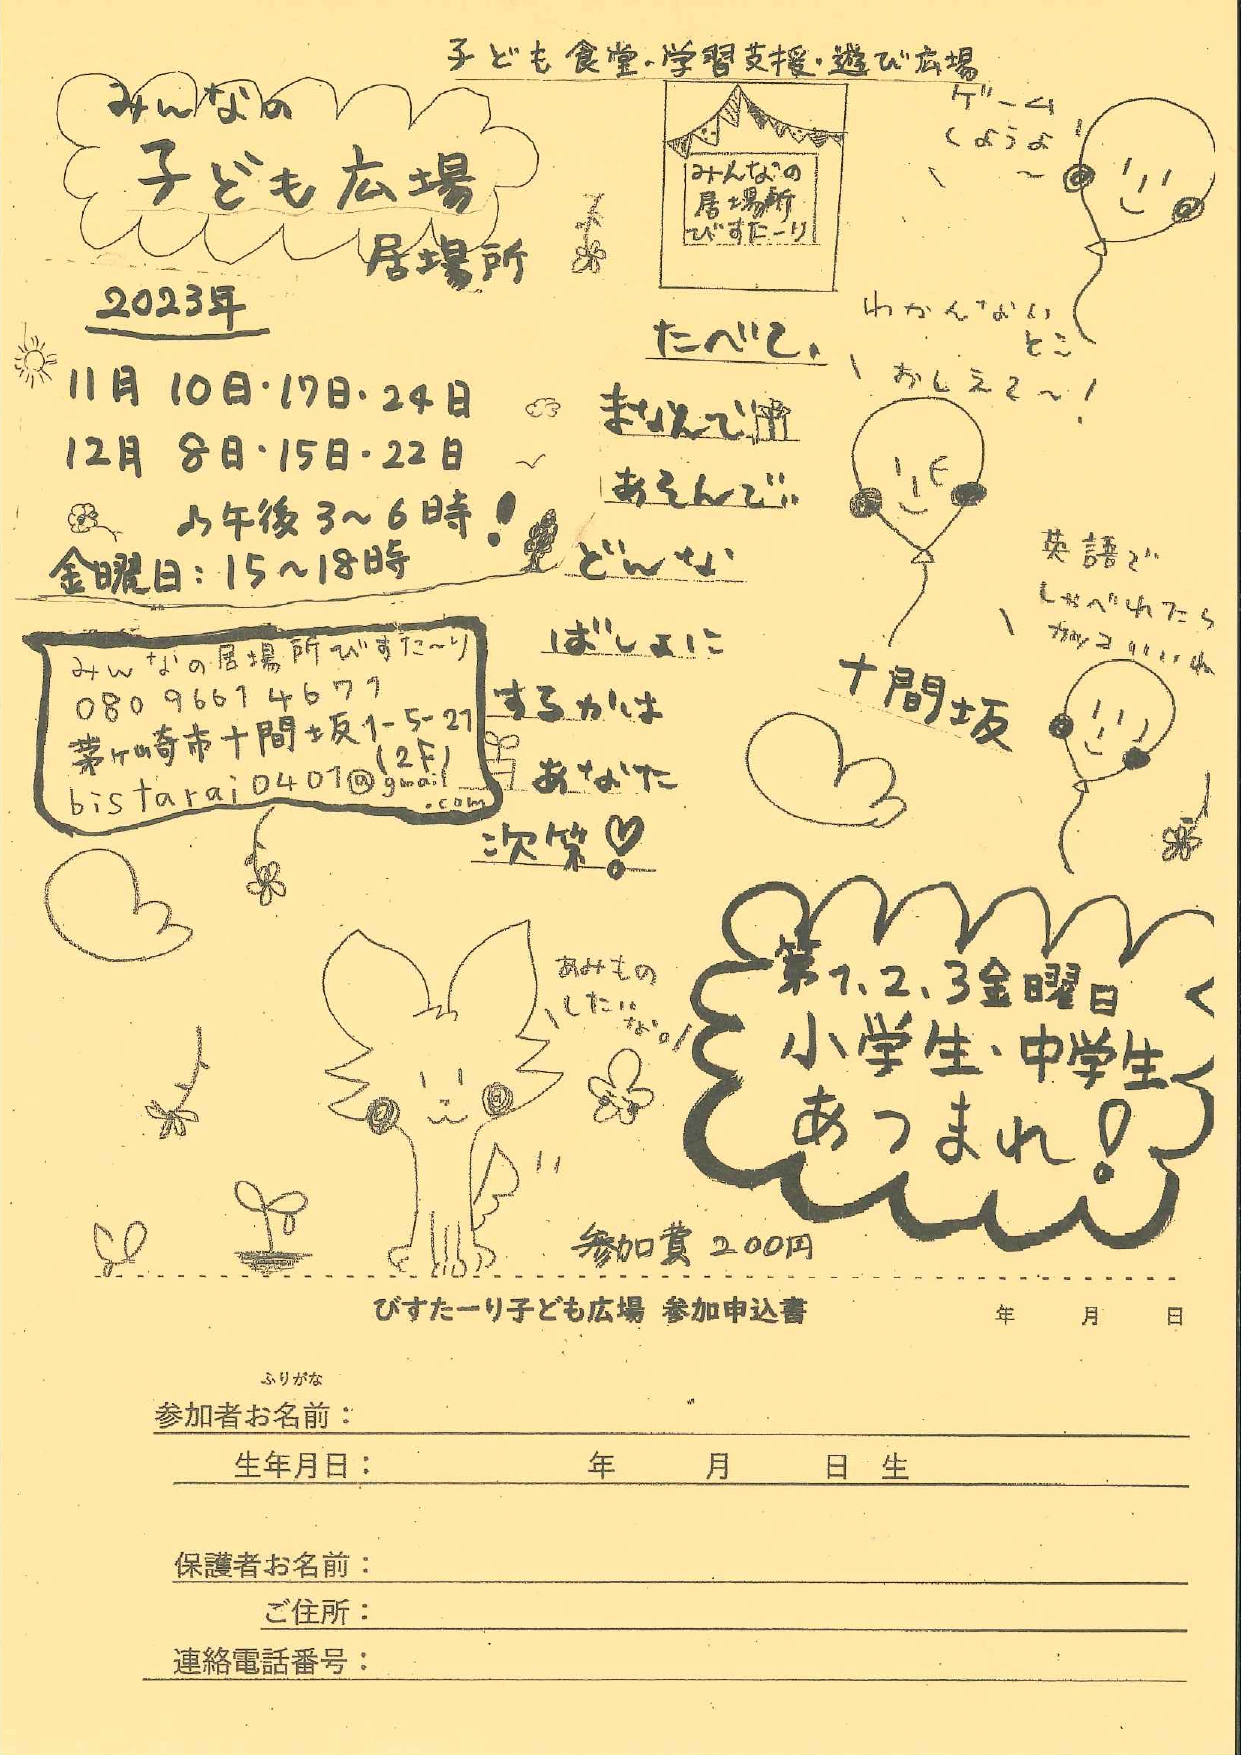 子ども食堂・学習支援・遊び広場
みんなの
子ども広場
居場所
2023年
11月 10日・17日・24日
12月 8日・15日・22日
午後3～6時!
金曜日:15～18時
みんなの居場所びすた～り
080 9661 4671
茅ヶ崎市十間坂1-5-21
(2F)
bistarai0401@gmail
.com
みんなの
居場所
びすたーり
たべて、
まなんで
あそんで
どんな
ばしょに
するかは
あなた
次第!
ゲーム
しようよ
～
わかんない
とこ
おしえて～!
英語で
しゃべれたら
カッコいいね
十間坂
あみもの
したい
な。
第1、2、3金曜日
小学生・中学生
あつまれ!
参加費 200円
びすたーり子ども広場 参加申込書 年 月 日
ふりがな
参加者お名前:
生年月日: 年 月 日 生
保護者お名前:
ご住所:
連絡電話番号: